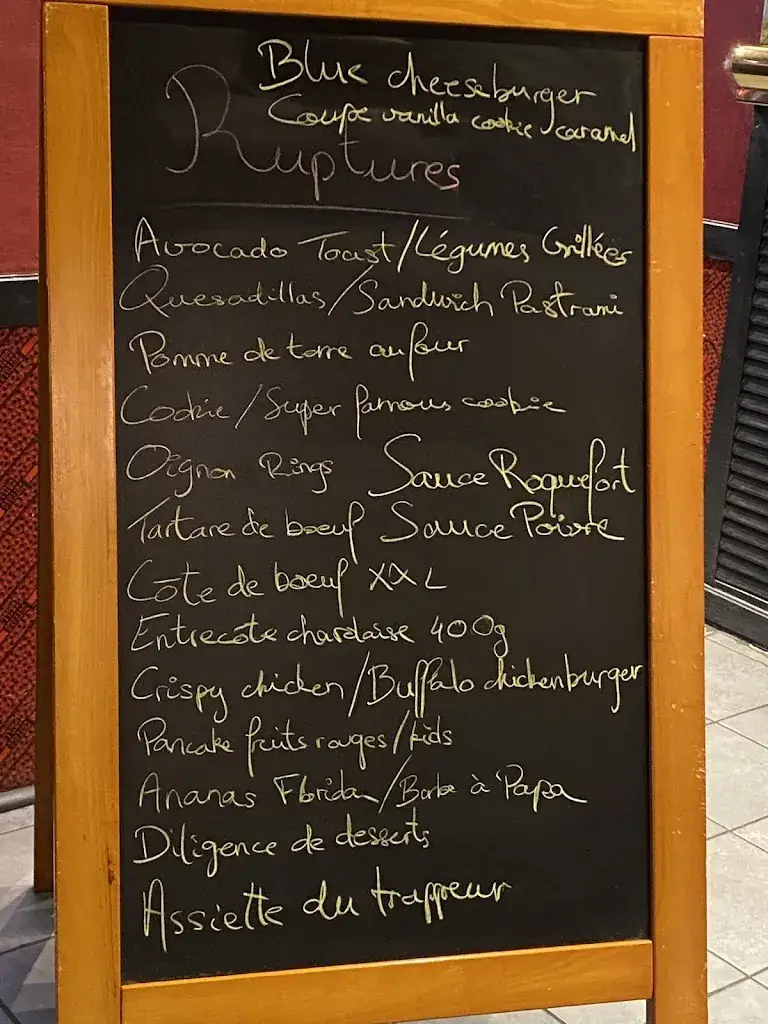 Blue cheeseburger
Coupe vanilla cookie caramel
Ruptures
Avocado Toast/Légumes Grillées
Quesadillas/Sandwich Pastrami
Pomme de terre au four
Cookie/Super famous cookie
Oignon Rings Sauce Roquefort
Tartare de boeuf Sauce Poivre
Côte de boeuf XXL
Entrecôte charolaise 400g
Crispy chicken/Buffalo chickenburger
Pancake fruits rouges/kids
Ananas Florida/Barbe à Papa
Diligence de desserts
Assiette du trappeur